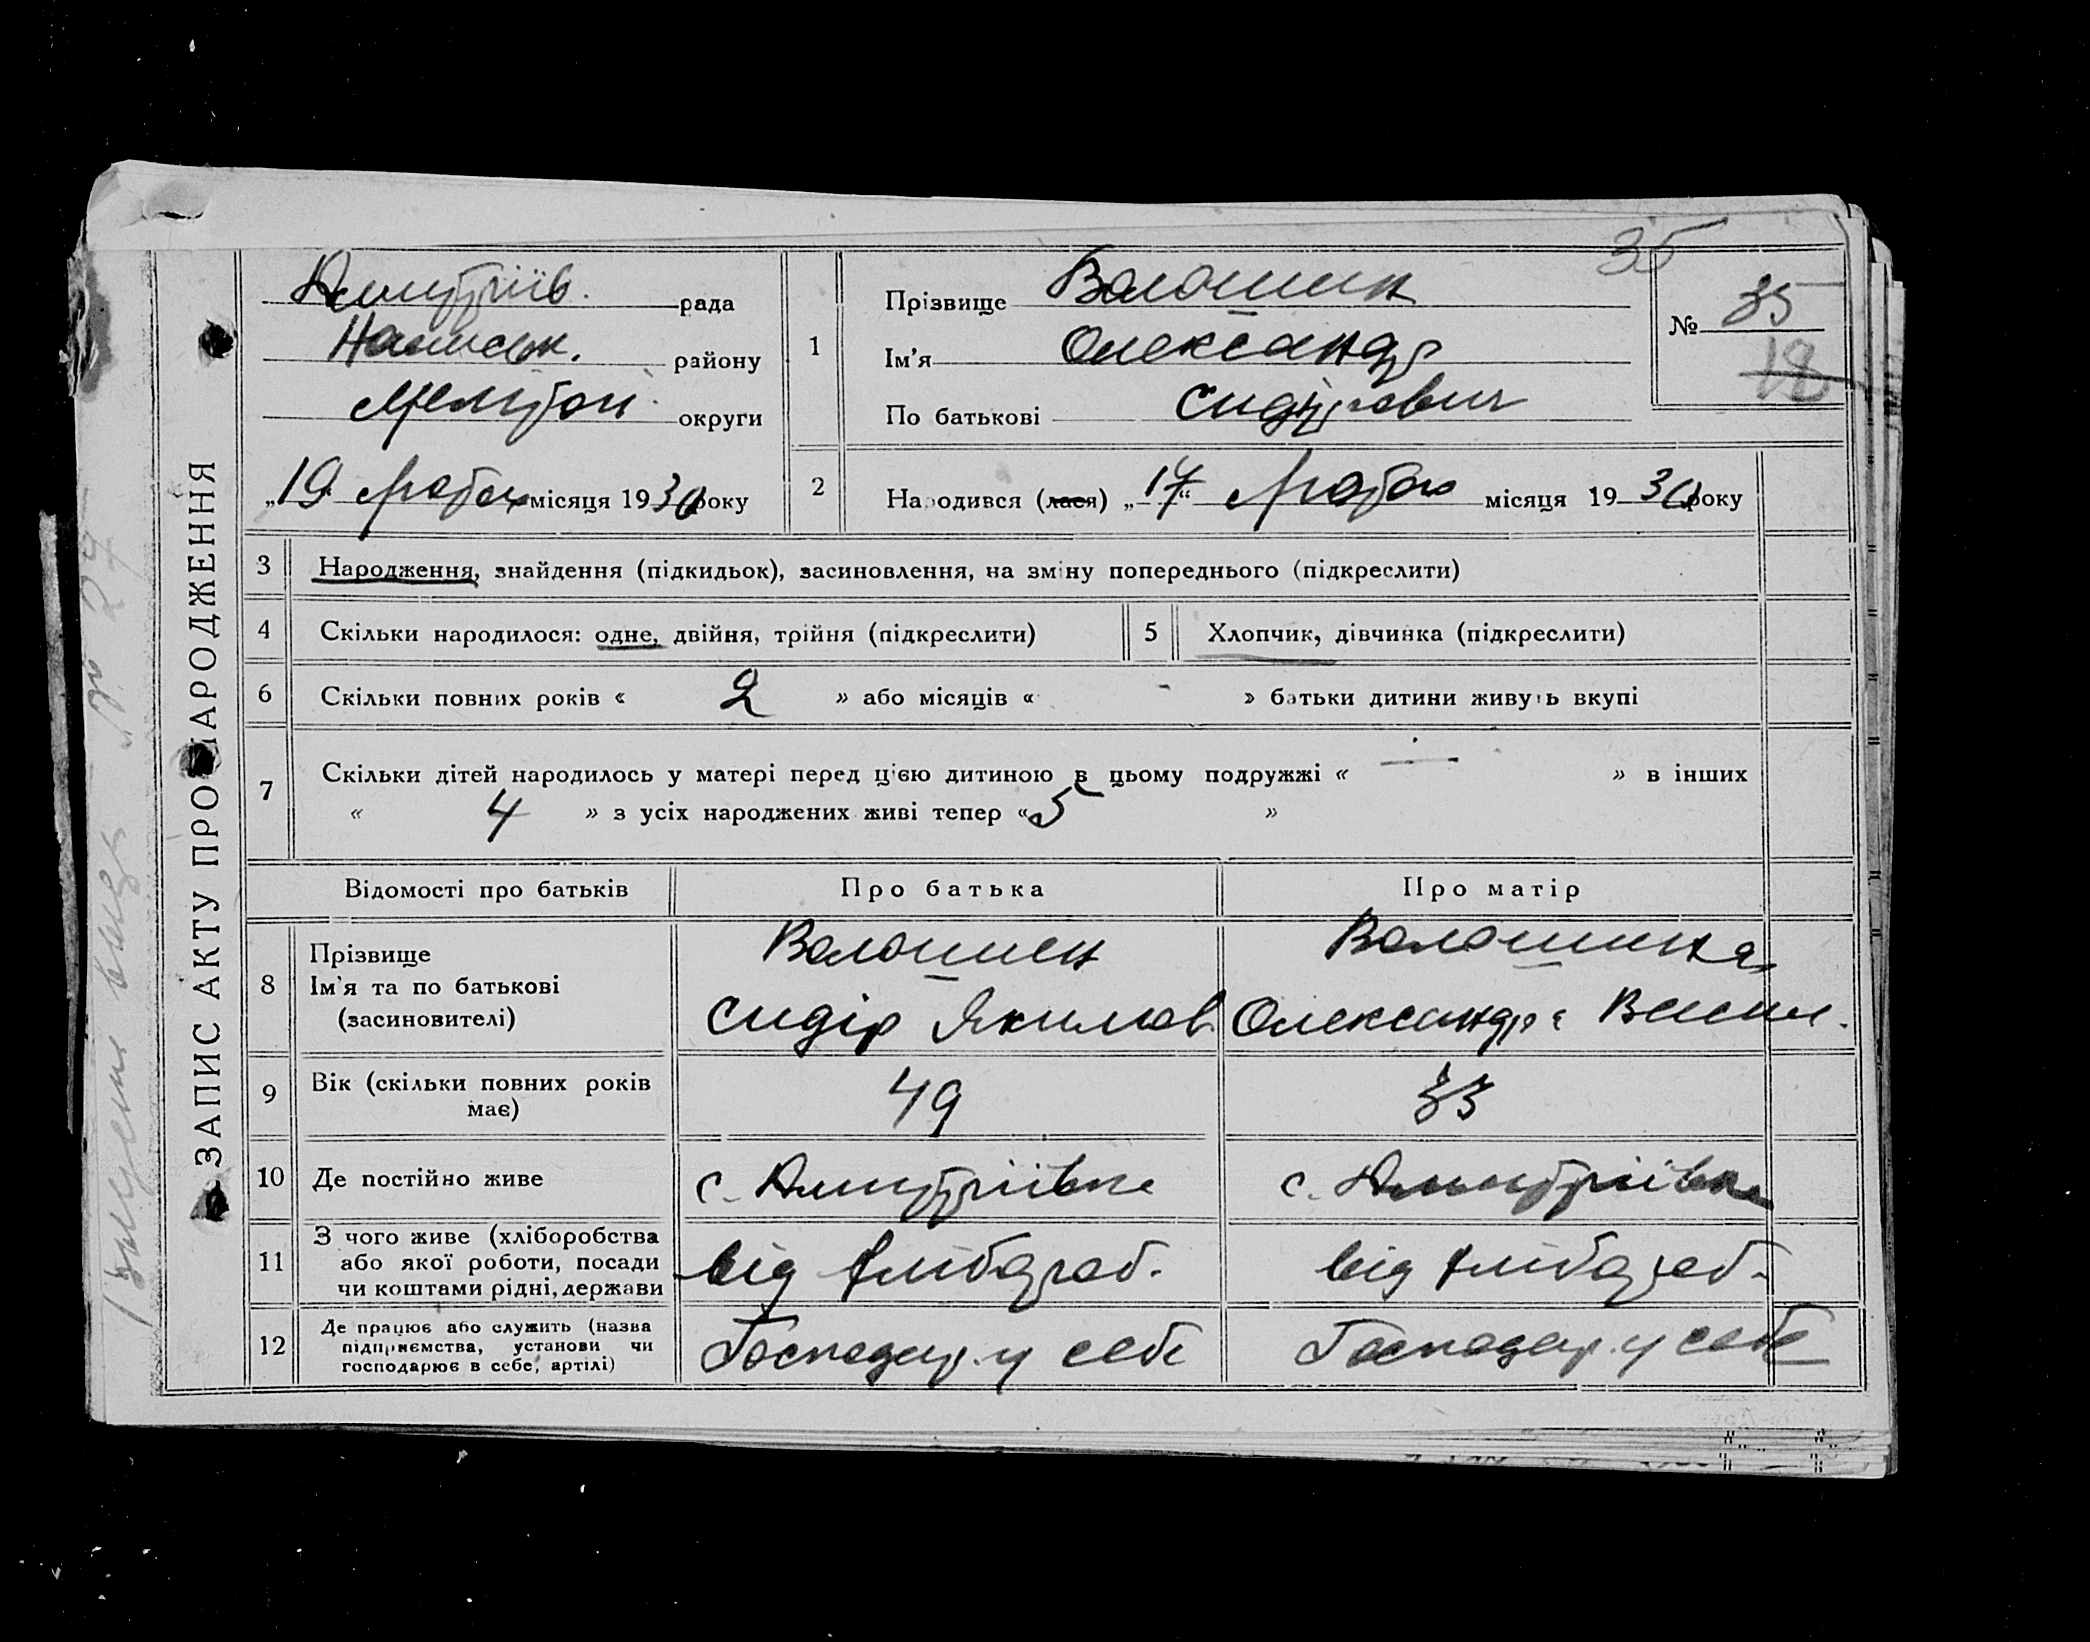 35
ЗАПИС АКТУ ПРО НАРОДЖЕННЯ
Дмитріїв. рада
району
Меліт округи
„19 Лютого місяця 1930 року
1
Прізвище Волошин
Ім'я Олександр
По батькові Сидорович
№ 35
18
2
Народився (лася) „17“ Лютого місяця 1930 року
3 Народження, знайдення (підкидьок), засиновлення, на зміну попереднього (підкреслити)
4 Скільки народилося: одне, двійня, трійня (підкреслити)
5 Хлопчик, дівчинка (підкреслити)
6 Скільки повних років « 2 » або місяців « - » батьки дитини живуть вкупі
7 Скільки дітей народилось у матері перед цією дитиною в цьому подружжі « — » в інших
« 4 » з усіх народжених живі тепер « 5 »
Відомості про батьків Про батька Про матір
8 Прізвище
Ім'я та по батькові
(засиновителі)
Волошин
Сидір Якимов
Волошина
Олександра Васил.
9 Вік (скільки повних років
має)
49
33
10 Де постійно живе
с. Дмитріївка
с. Дмитріївка
11 З чого живе (хліборобства
або якої роботи, посади
чи коштами рідні, держави
від хлібороб.
від хлібороб.
12 Де працює або служить (назва
підприємства, установи чи
господарює в себе, артілі)
Господар. у себе
Господар. у себе